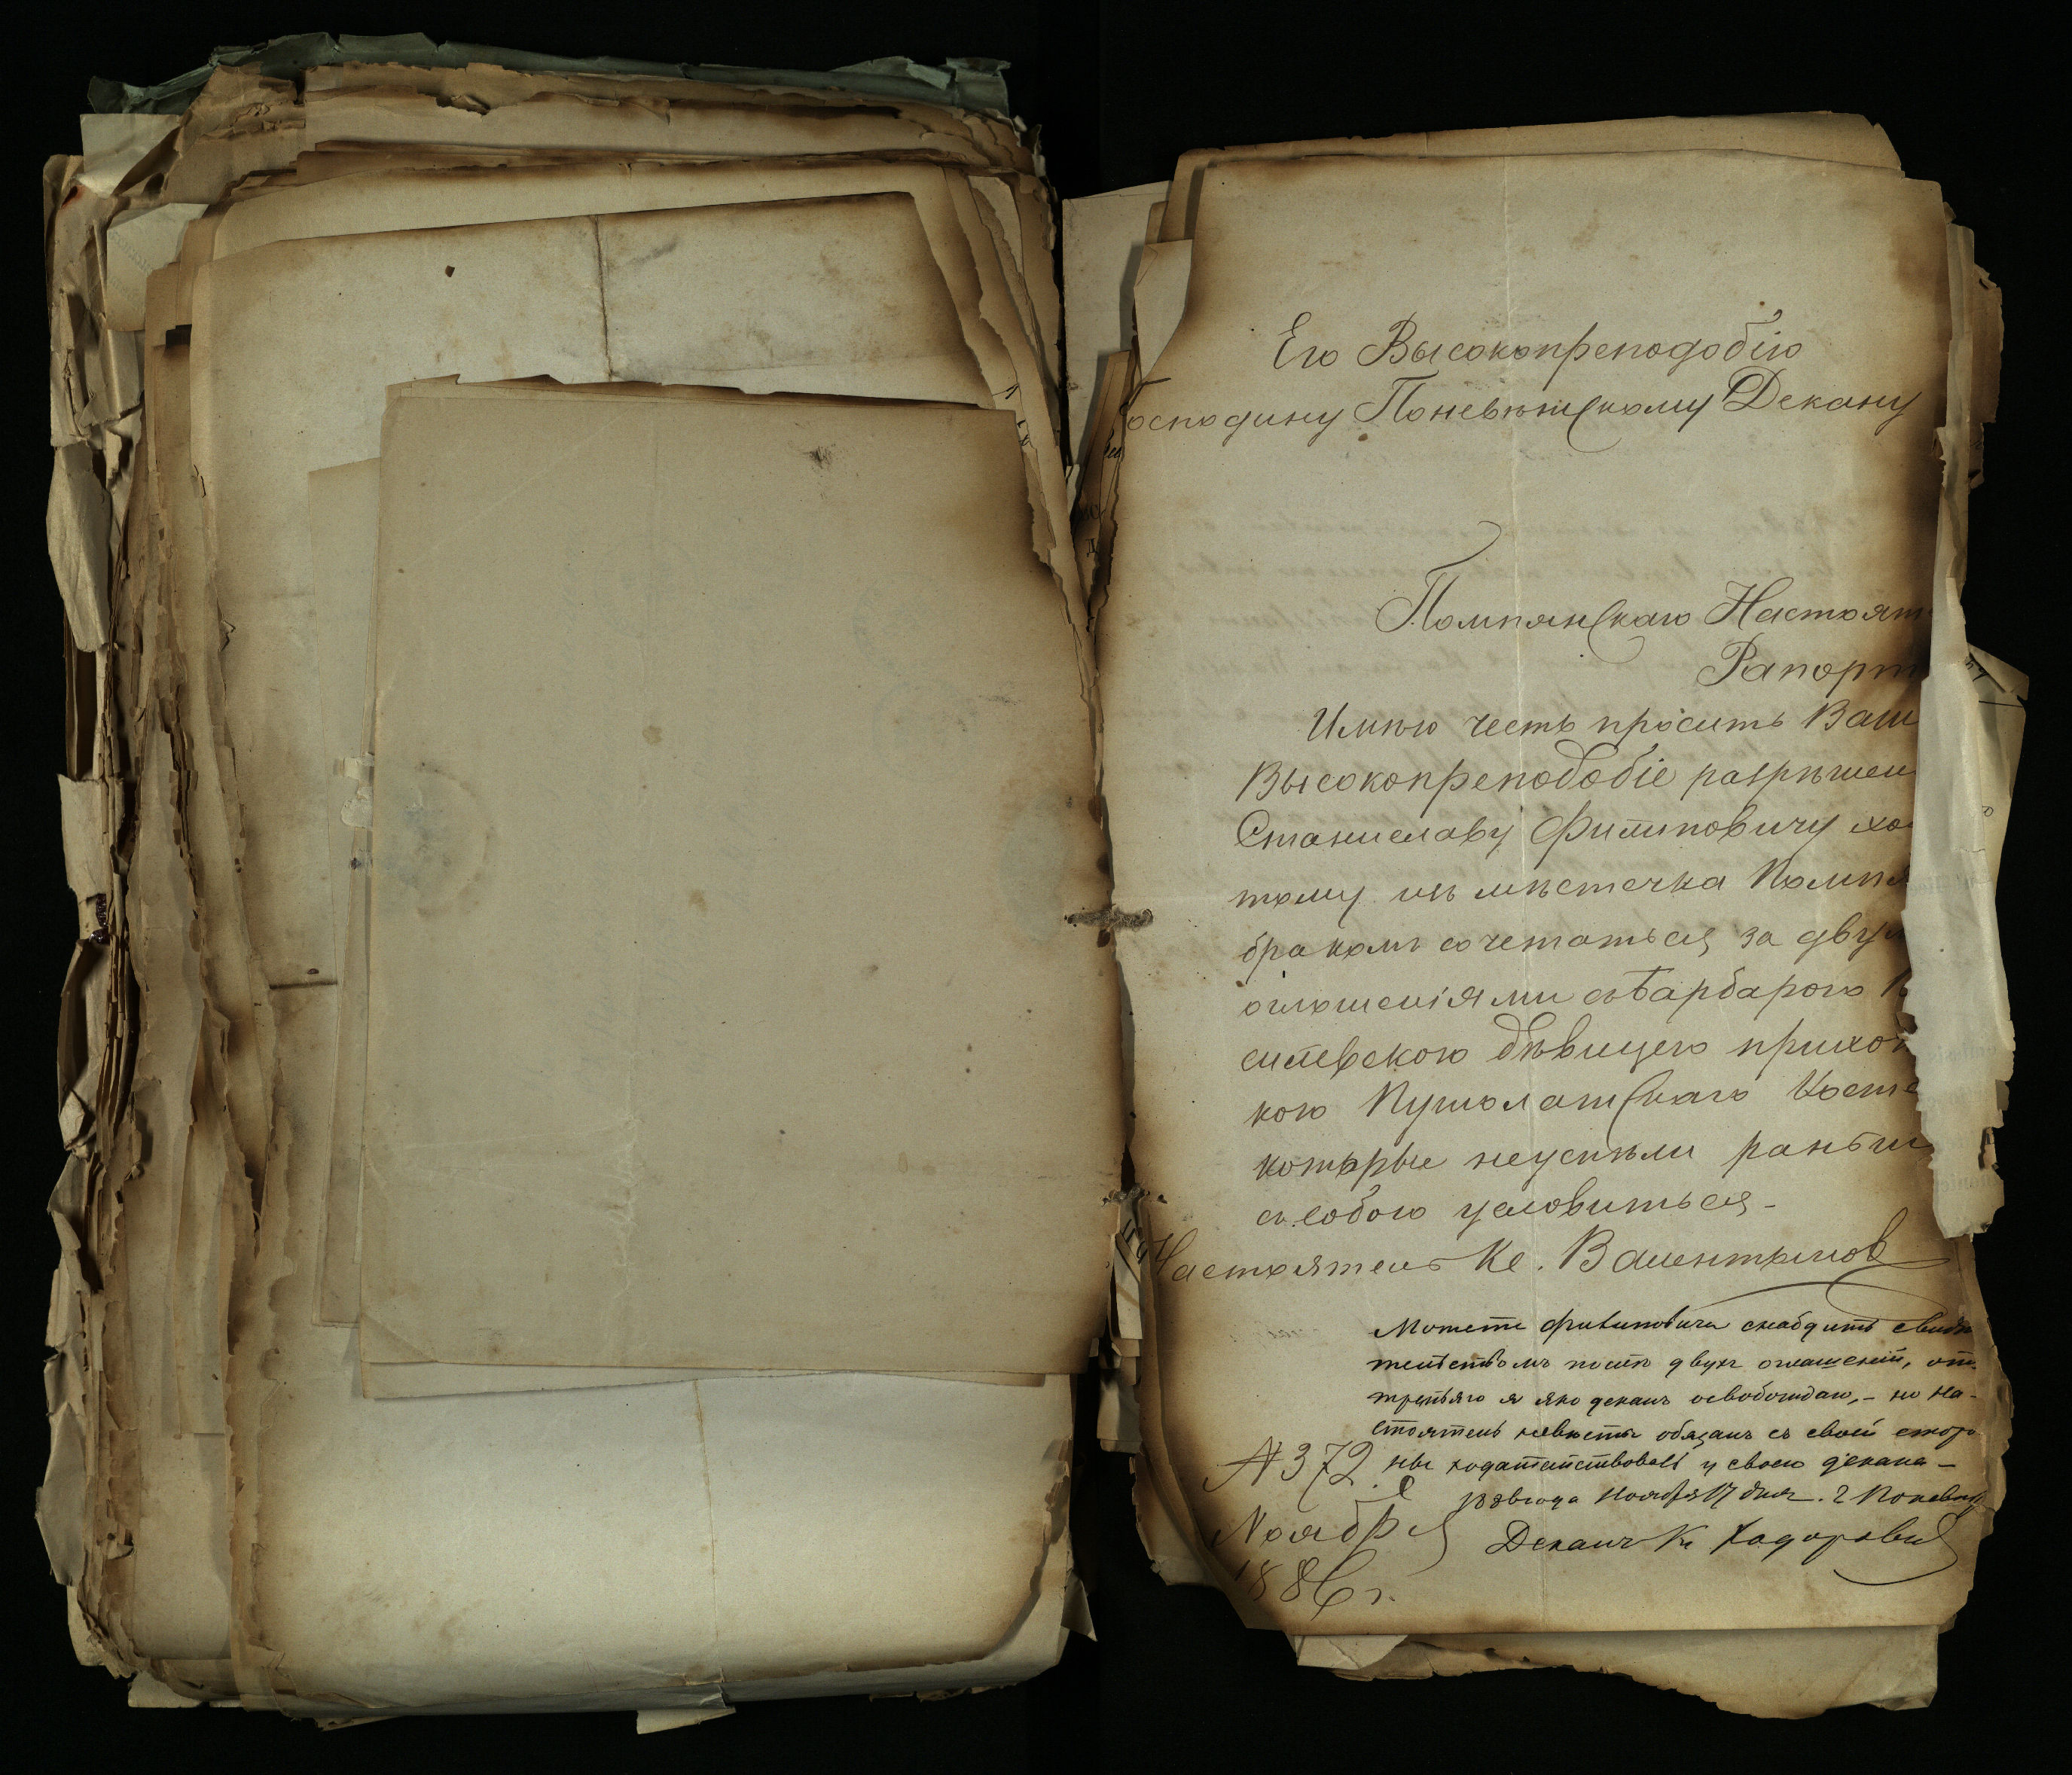 Его Высокопреподобію
Господину Поневѣжскому Декану
Помпянскаго Настоят
Рапорт
Имѣю честь просить Ваш
Высокопреподобіе разрѣшен
Станиславу Филиповичу хо
тому изъ мѣстечка Помпя
бракомъ сочетаться за двум
оглошеніями съ Барбарою
силевскою дѣвицею прихо
кою Пушолатскаго Косте
которые неуспѣли раньш
съ собою условиться -
Настоятель Кс. Валентынов
Можете Филиповича снабдить свидѣ
тельствомъ послѣ двухъ оглашеній, отъ
третьяго я яко деканъ освобождаю, - но На-
стоятель невѣсты обязанъ съ своей сторо
ны ходатайствовать у своего декана -
Ноября 17 дня. г Поневѣж
Деканъ Кс
N 372
Ноября
1886 г.